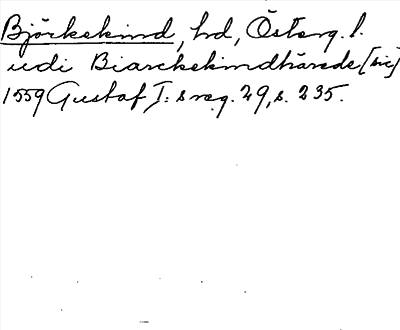 Björkekind, hd, Österg. l.
udi Biarckekindhärade [sic]
1559 Gustaf I:s reg. 29, s. 235.